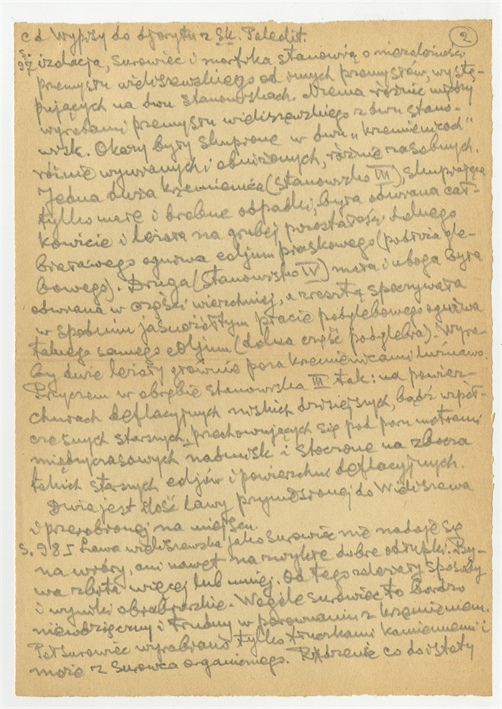 c d Wypisy do odczytu z Sk. Paleolit. 2
izolacja, surowiec i morfika stanowią o niezależności
przemysłu wieliszewskiego od innych przemysłów, wystę-
pujących na dwu stanowiskach. Niema różnic między
wyrobami przemysłu wieliszewskiego z dwu stano-
wisk. Okazy były skupione w dwu "krzemienicach"
różnie wywianych i obniżonych, różnie zasobnych.
Jedna duża krzemienica (stanowisko III), skupiająca
tylko małe i drobne odpadki, była odwiana cał-
kowicie i leżała na grubej pozostałości dolnego
ogniwa edjum piaskowego (podłoża gle-
bowego). Druga (stanowisko IV) mała i uboga była
odwiana w części wierzchniej, a resztą spoczywała
w spodnim jasnożółtym podglebowego ogniwa
takiego samego edjum (dolna część podglebia). Wyro-
by dwie leżały głównie poza krzemienicami luźnawo.
Przyczem w obrębie stanowiska III tak: na powierz-
chniach deflacyjnych niskich dzisiejszych, bądź współ-
czesnych starszych, przechowujących się pod
międzyczasowych nadmisk i stoczone na zbocza
takich starszych edjów i powierzchni deflacyjnych.
Duża jest ilość lawy przyniesionej do Wieliszewa
i przerobionej na miejscu.
S. 985 Lawa wieliszewska jako surowiec nie nadaje się
na wióry, ani nawet na zwykłe dobre odłupki. By-
wa zbyta więcej lub mniej. Od tego zależały sposoby
i wyniki obrabiarskie. Wogóle surowiec to bardzo
niewdzięczny i trudny w porównaniu z krzemieniem.
Ten surowiec wyrabiano tylko tłuczkami kamiennemi i
może z surowca organicznego. co do istoty